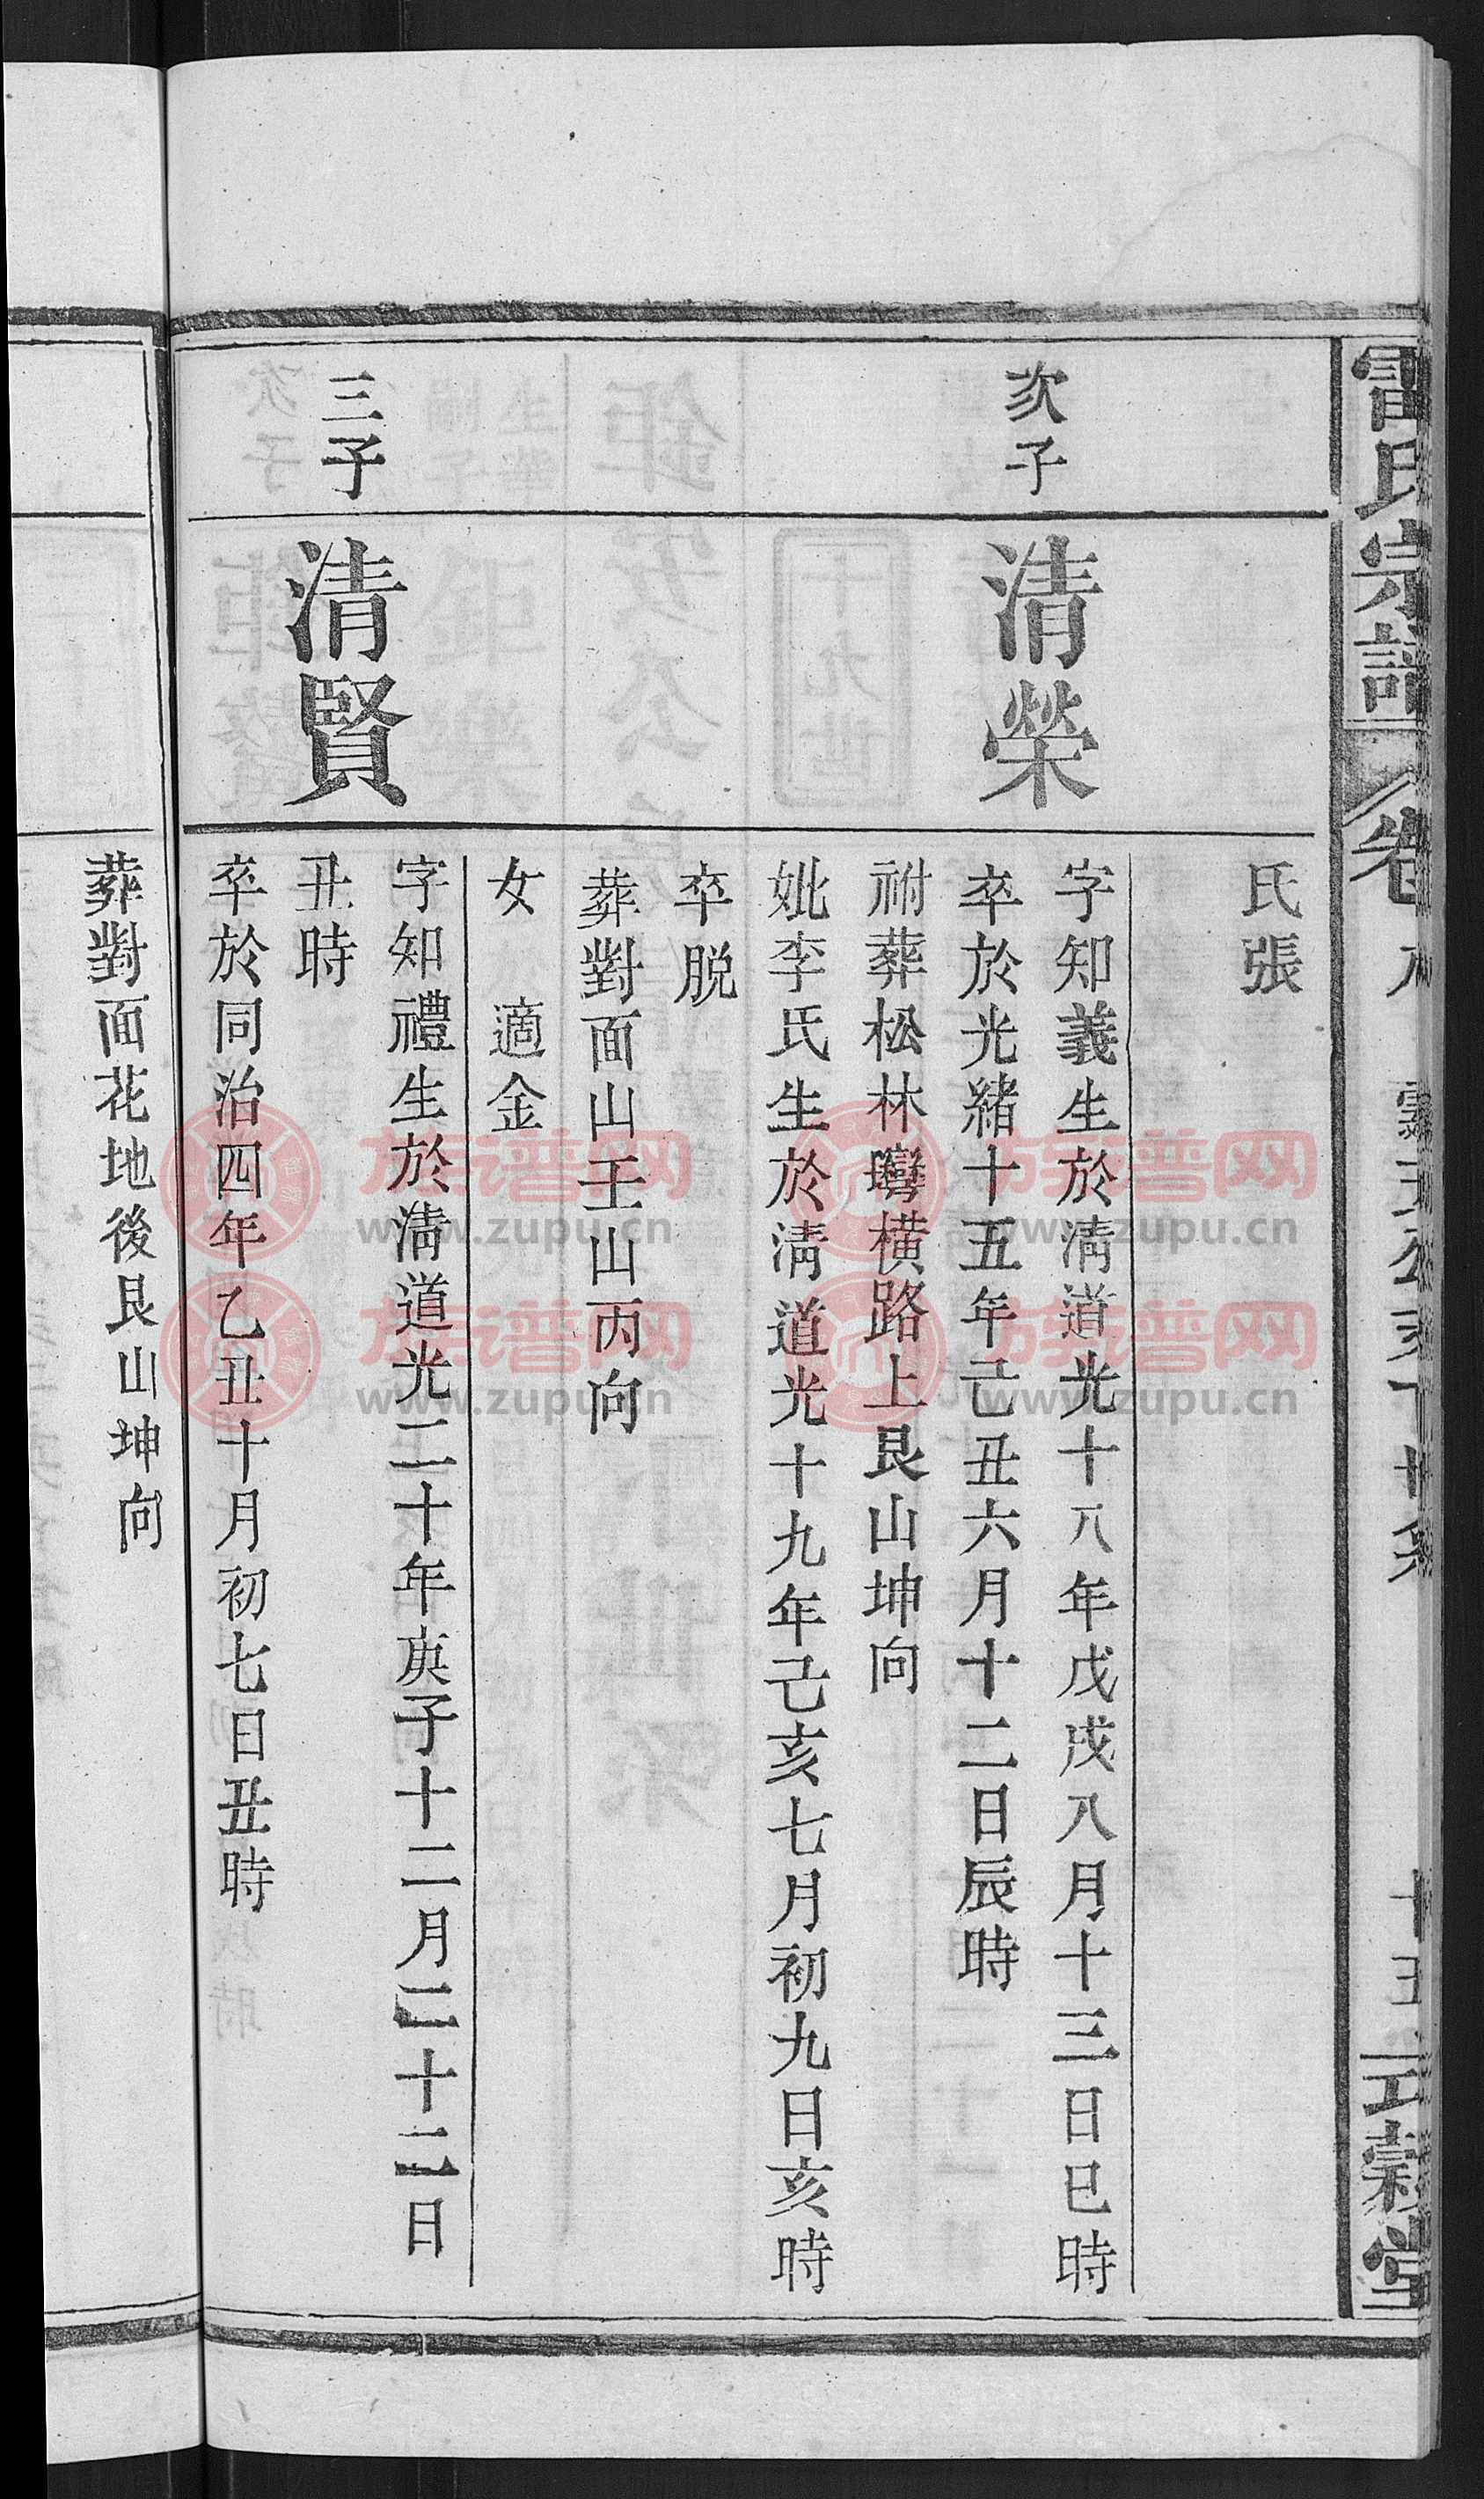 雷氏宗譜
卷八
十五
五穀堂
氏張
次子
清榮
字知義生於淸道光十八年戊戌八月十三日巳時
卒於光緒十五年己丑六月十二日辰時
祔葬松林灣橫路上艮山坤向
妣李氏生於淸道光十九年己亥七月初九日亥時
卒脱
葬對面山壬山丙向
女 適金
三子
清賢
字知禮生於淸道光二十年庚子十二月二十二日
丑時
卒於同治四年乙丑十月初七日丑時
葬對面花地後艮山坤向
族谱网
www.zupu.cn
族谱网
www.zupu.cn
族谱网
www.zupu.cn
族谱网
www.zupu.cn